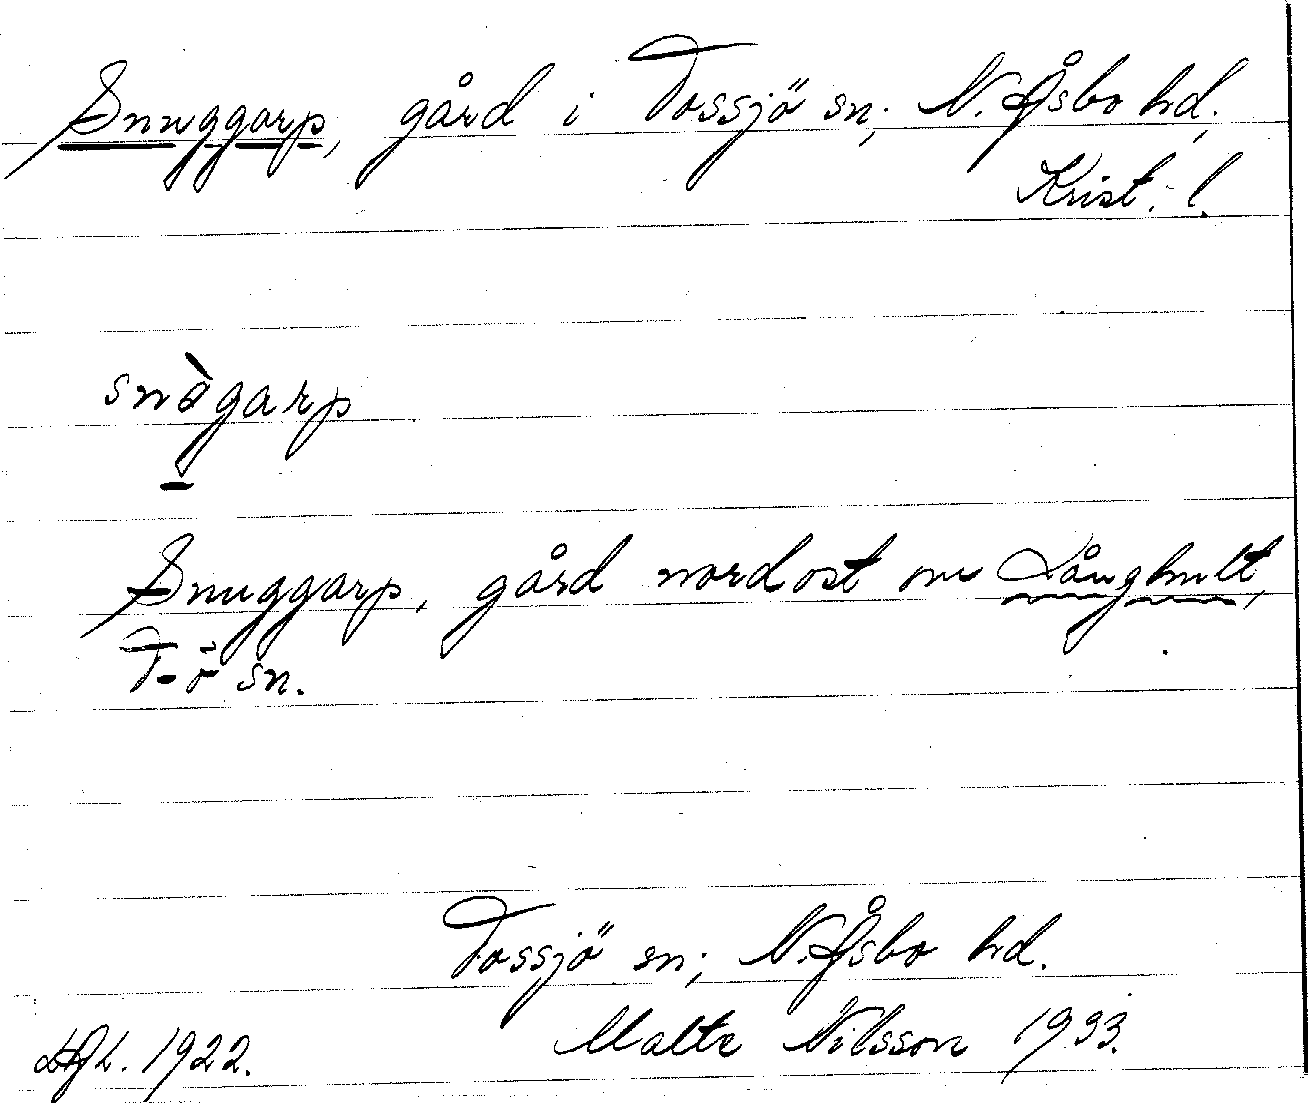 Snuggarp, gård i Tossjö sn; N. Åsbo hd,
Krist. l.
snògarp
Snuggarp, gård nordost om Långhult,
T-ö sn.
Tossjö sn; N. Åsbo hd.
Malte Nilsson 1933.
LAL. 1922.